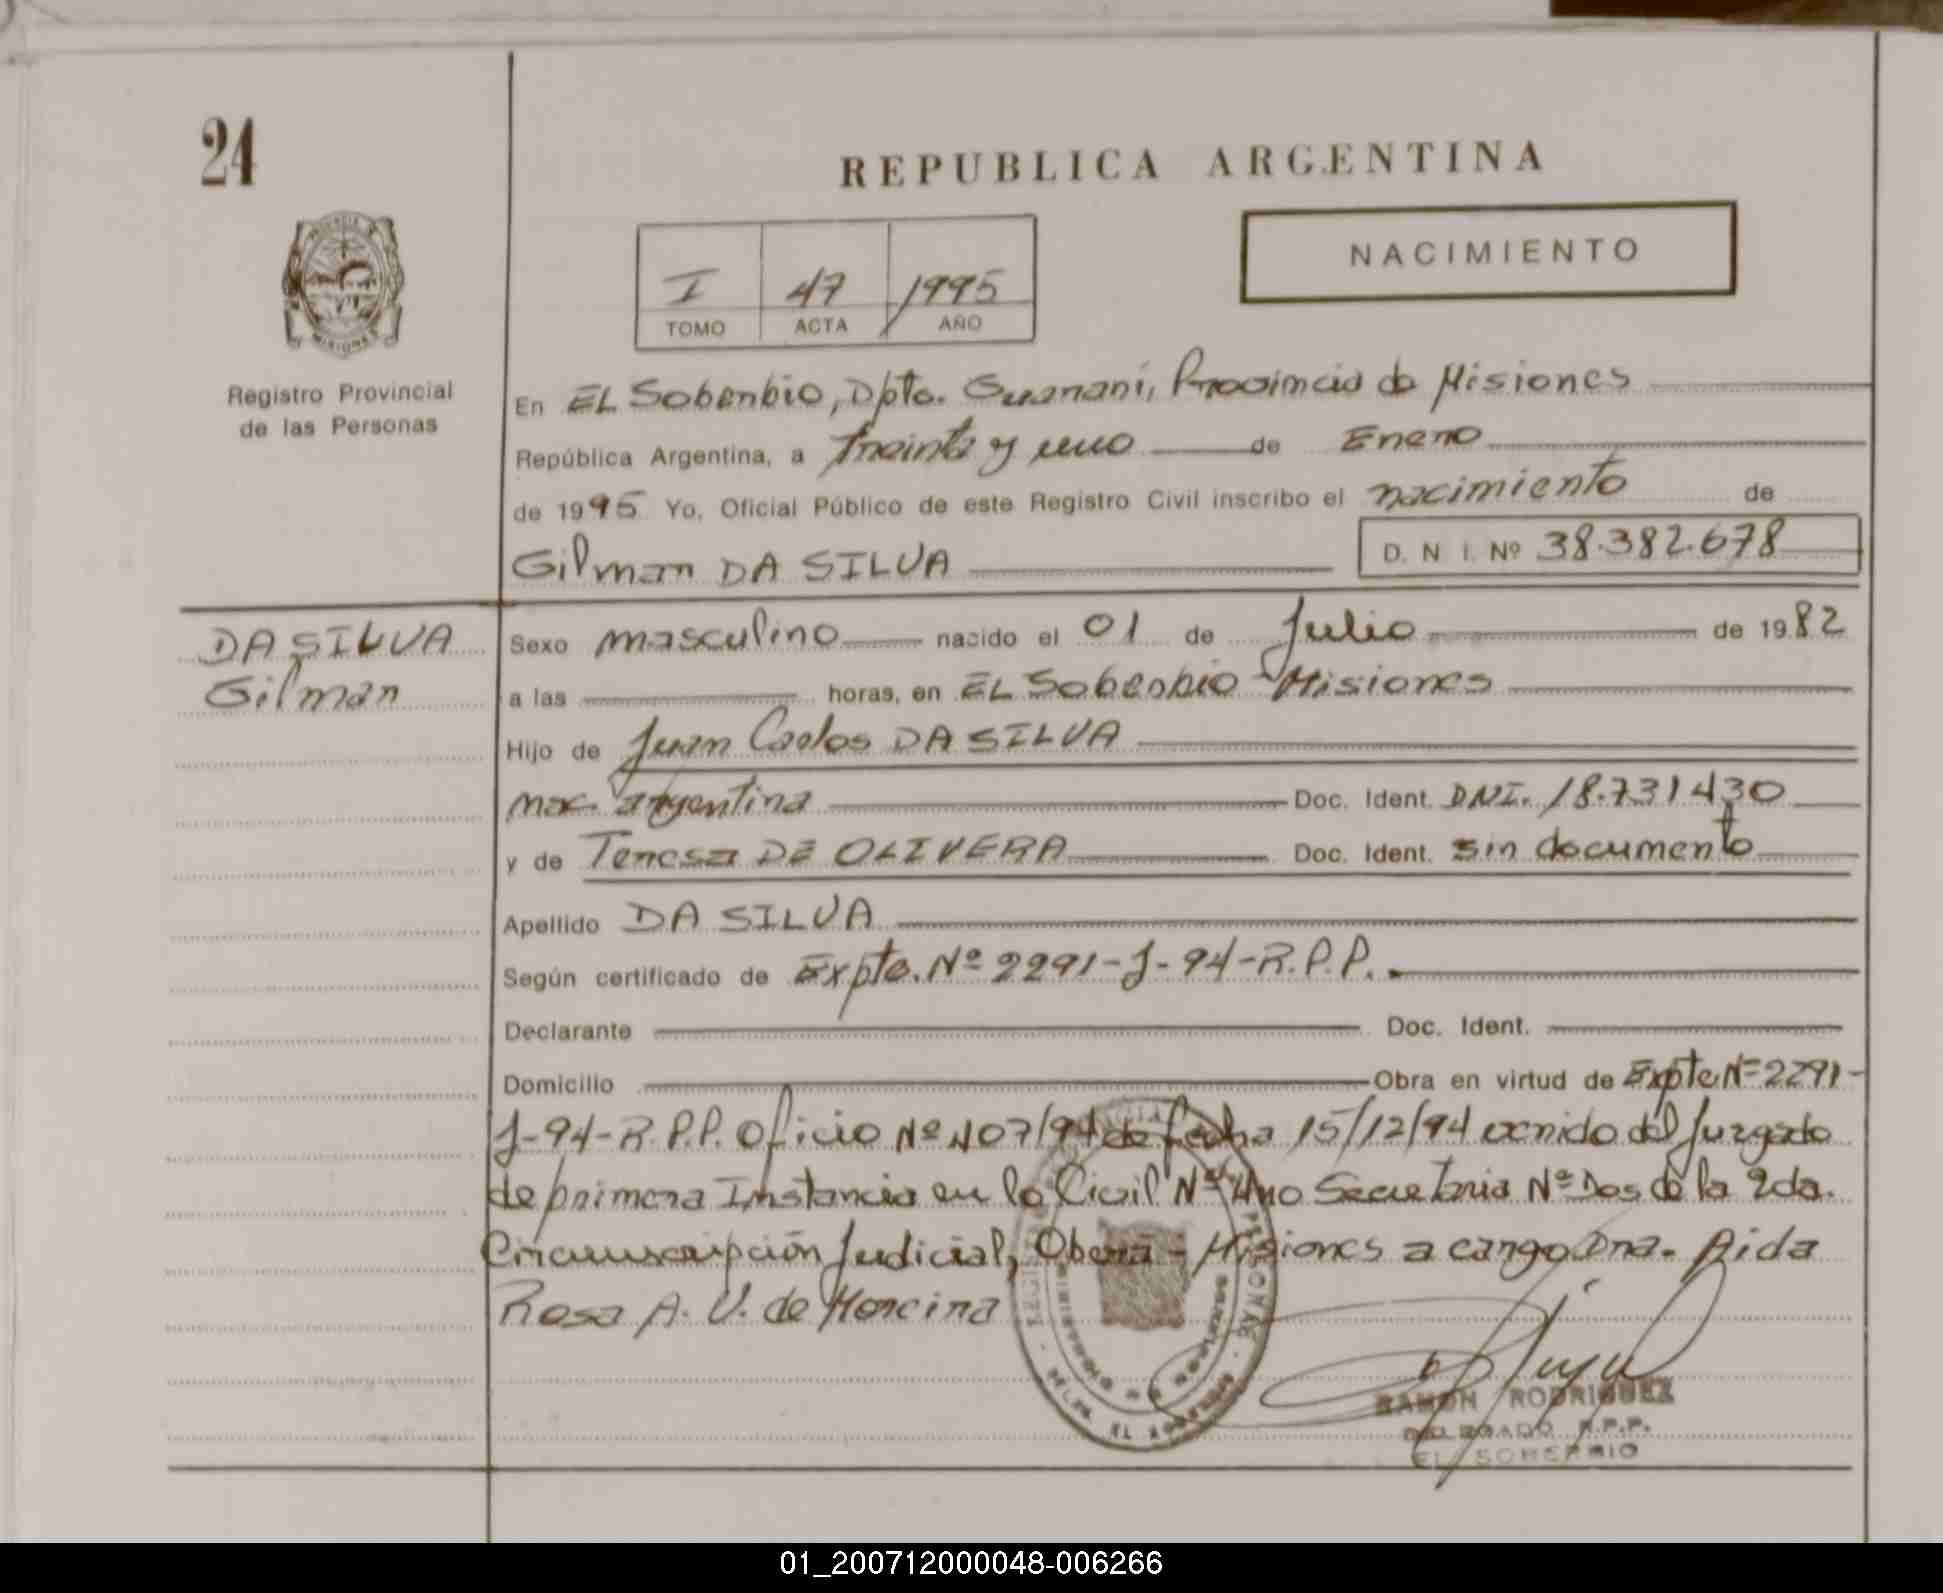 24
REPUBLICA ARGENTINA
NACIMIENTO
I 47 1995
TOMO ACTA AÑO
Registro Provincial
de las Personas
En EL Soberbio, Dpto. Guaraní, Provincia de Misiones
República Argentina, a treinta y uno de Enero
de 1995 Yo, Oficial Público de este Registro Civil inscribo el nacimiento de
Gilmar DA SILVA D. N. I. Nº 38.382.678
DA SILVA
Gilmar
Sexo masculino nacido el 01 de Julio de 1982
a las horas, en EL Soberbio - Misiones
Hijo de Juan Carlos DA SILVA
nac. argentina Doc. Ident. DNI. 18.731430
y de Teresa DE OLIVERA Doc. Ident. sin documento
Apellido DA SILVA
Según certificado de Expte. Nº 2291-J-94-R.P.P.
Declarante Doc. Ident.
Domicilio Obra en virtud de Expte Nº 2291-
J-94-R.P.P. Oficio Nº 407/94 de fecha 15/12/94 venido del Juzgado
de primera Instancia en lo Civil Nº Uno Secretaria Nº Dos de la 2da.
Circunscripción Judicial, Oberá - Misiones a cargo Dna. Aida
Rosa A. V. de
RAMON RODRIGUEZ
DELEGADO R.P.P.
EL SOBERBIO
01_200712000048-006266